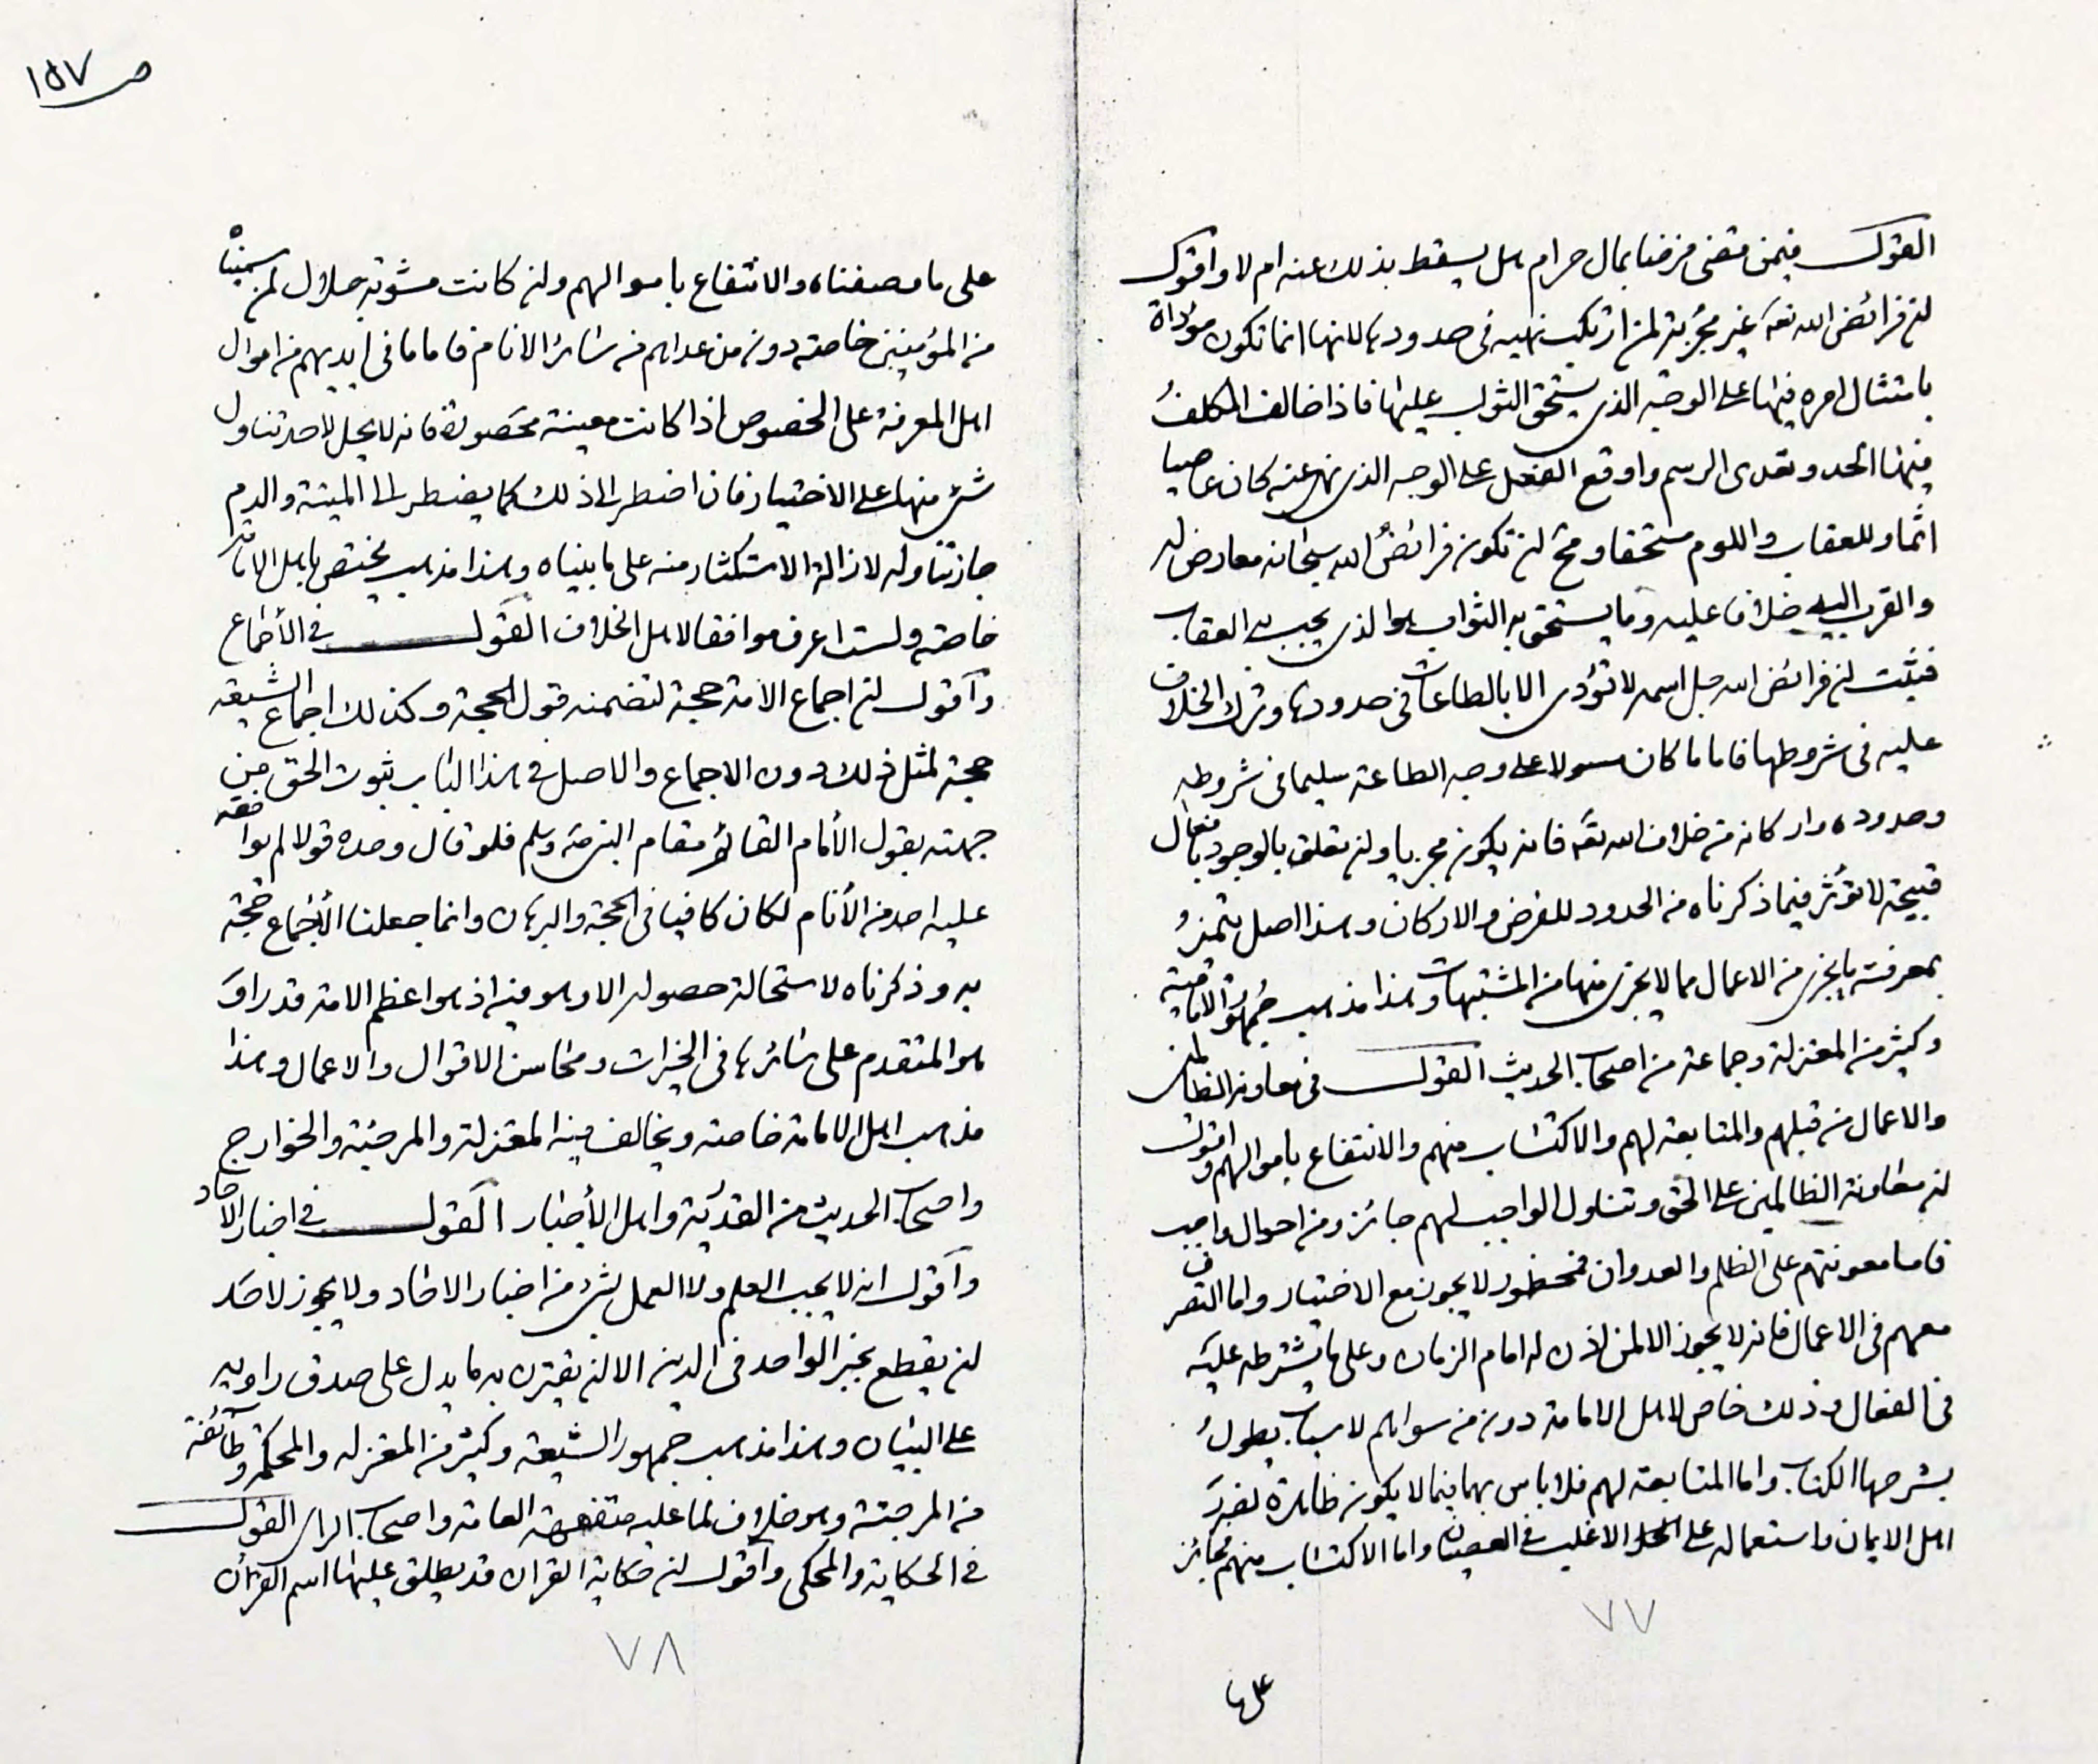 القول فيمن قضى فرضا بمال حرام هل يسقط بذلك عنه ام لا واقول
ان فرائض الله تعه غير مجزية لمن ارتكب نهيه في حدودها لانها انما تكون مؤداة
بامتثال امره فيها على الوجه الذي يستحق الثواب عليها فاذا خالف المكلف
فيها الحد وتعدى الرسم واوقع الفعل على الوجه الذي نهى عنه كان عاصيا
اثما وللعقاب واللوم مستحقا ومح ان تكون فرائض الله سبحانه معارض له
والقرب اليه خلافا عليه وما يستحق به الثواب هو الذي يجب به العقاب
فثبت ان فرائض الله جل اسمه لا تؤدى الا بالطاعات في حدودها وترك الخلاف
عليه في شروطها فاما ما كان على وجه الطاعة سليما في شروطه
وحدوده واركانه من خلاف الله تعه فانه يكون مجزيا وان تعلق بالوجود بافعال
قبيحة لا تؤثر فيما ذكرناه من الحدود للفرض والاركان وهذا اصل يتميز
بمعرفته ما يجزى من الاعمال مما لا يجزى منها من المشتبهات وهذا مذهب جمهور الامامية
وكثير من المعتزلة وجماعة من اصحاب الحديث القول في معاونه الظالمين
والاعمال من قبلهم والمتابعة لهم والاكتساب منهم والانتفاع باموالهم واقول
ان معاونة الظالمين على الحق وتناول الواجب لهم جائز ومن احوال واجب
فاما معونتهم على الظلم والعدوان فمحظور لا يجوز مع الاختيار واما التصرف
معهم في الاعمال فانه لا يجوز الا لمن اذن له امام الزمان وعلى ما يشترطه عليه
في الفعال وذلك خاص لاهل الامامة دون من سواهم لاسباب يطول
بشرحها الكتاب واما المتابعة لهم فلا باس بها فيما لا يكون ظاهره تضرر
اهل الايمان واستعماله على الاغلب في العصيان واما الاكتساب منهم فجائز
٧٧
على ما
ص ١٥٧
على ما وصفناه والانتفاع باموالهم وان كانت مشوبة حلال لمن سميناه
من المؤمنين خاصة دون من عداهم من سائر الانام فاما ما في ايديهم من اموال
اهل المعرفة على الخصوص اذا كانت معينة محصورة فانه لا يحل لاحد تناول
شئ منها على الاختيار فان اضطر الى ذلك كما يضطر الى الميتة والدم
جاز تناوله لازالة الاستكثار منه على ما بيناه وهذا مذهب يختص باهل الامامة
خاصة ولست اعرف موافقا لاهل الخلاف القول في الأجماع
واقول ان اجماع الامة حجة لتضمنه قول الحجة وكذلك اجماع الشيعة
حجة لمثل ذلك دون الاجماع والاصل في هذا الباب ثبوت الحق من
جهته بقول الأمام القائم مقام النبي صه وسلم فلو قال وحده قولا لم يوافقه
عليه احد من الأنام لكان كافيا في الحجة والبرهان وانما جعلنا الأجماع حجة
به وذكرناه لاستحالة حصوله الا وهو فيه اذ هو اعظم الامة قدرا و
هو المتقدم على سائرها في الخيرات ومحاسن الاقوال والاعمال وهذا
مذهب اهل الامامة خاصة ويخالف فيه المعتزلة والمرجئة والخوارج
واصحاب الحديث من القدرية واهل الأخبار القول في اخبار الاحاد
واقول انه لا يجب العلم ولا العمل بشئ من اخبار الاحاد ولا يجوز لاحد
ان يقطع بخبر الواحد في الدين الا ان يقترن به ما يدل على صدق راويه
على البيان وهذا مذهب جمهور الشيعة وكثير من المعتزله والمحكمة وطائفة
من المرجئة وهو خلاف لما عليه متفقهة العامة واصحاب الراى القول
في الحكاية والمحكى واقول ان حكاية القران قد يطلق عليها اسم القرأن
٧٨